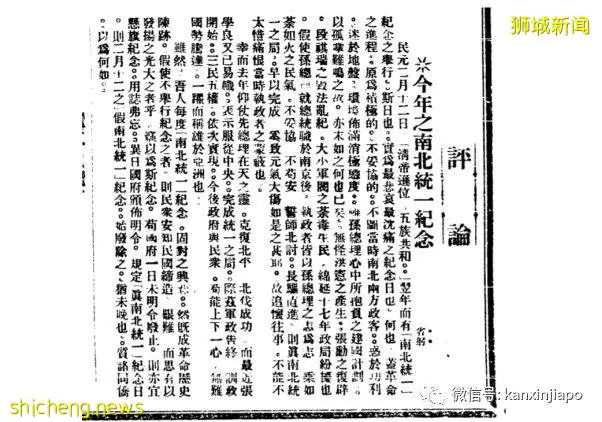 狮城新闻
評論
※今年之南北統一紀念
省躬
民元二月十二日。「清帝遜位。五族共和。」翌年而有「南北統一」
紀念之舉行。斯日也。實為最悲哀最沈痛之紀念日也。何也。蓋革命
之進程。原為積極的。不妥協的。不圖當時南北兩方政客。惑於功利
。迷於地盤。環境佈滿消極態度。雖孫總理心中所抱負之建國計劃。
以孤掌難鳴之故。亦未如之何也已矣。無怪洪憲之產生。張勳之復辟
。段祺瑞之毀法亂紀。大小軍閥之荼毒生民。綿延十七年政局紛擾也
。假使孫總理已就總統職於南京後。執政者皆以孫總理之志為志。乘如
荼如火之民氣。不妥協。不苟安。誓師北討。長驅直進。則眞南北統
一之局。早以完成。奚致元氣大傷如是之甚耶。故追懷往事。不能不
太惜痛恨當時執政者之蒙蔽也。
幸而去年仰仗先總理在天之靈。克復北平。北伐成功。而最近張
學良又已易幟。表示服從中央。完成統一之局。際茲軍政告終。訓政
開始。三民五權。依次實現。今後政府與民衆。苟能上下一心。無難
國勢騰達。一躍而稱雄於亞洲也。
雖然。吾人每度「南北統一」紀念。固對之興悲。然既成革命歷史
陳跡。假使不舉行紀念之者。則民衆安知民國締造之艱難。而思有以
發揚之光大之者乎。以為斯紀念。苟國府一日未明令廢止。則亦宜
懸旗紀念。用誌弗忘。異日國府頒佈明令。規定「眞南北統一」紀念日
。則二月十二之「假南北統一」紀念。始廢除之。猶未晚也。質諸同僑
。以為何如。
shicheng.news
微信号: kanxinjiapo